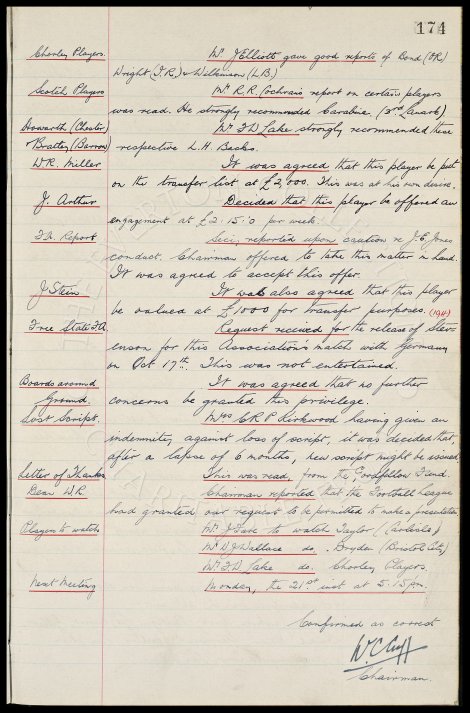 174
Chorley Players. Mr J Elliott gave good reports of Bond (O.R)
Wright (I.R) & Wilkinson (L.B)
Scotch Players Mr R.R. Cochran's report on certain players
was read. He strongly recommended Carabine. (3rd Lanark)
Howarth (Chester) Mr F.D Lake strongly recommended these
& Bratley (Barrow) respective L.H. Backs.
W.R. Miller It was agreed that this player be put
on the transfer list at £2,000. This was at his own desire.
J. Arthur Decided that this player be offered an
engagement at £2.15.0 per week.
F.A. Report Secy reported upon caution re J.E. Jones
conduct. Chairman offered to take this matter in hand.
It was agreed to accept this offer.
J Stein It was also agreed that this player
be valued at £1000 for transfer purposes. (194)
Free State F.A Request received for the release of Stev-
enson for this Association's match with Germany
on Oct 17th. This was not entertained.
Boards around It was agreed that no further
Ground. concerns be granted this privilege.
Lost Script. Mrs C.R.P Kirkwood having given an
indemnity, against loss of script, it was decided that,
after a lapse of 6 months, new script might be issued
Letter of Thanks This was read, from the Gordofillow Fund.
Dean W.R. Chairman reported that the Football League
had granted our request to be permitted to make a presentation
Players to watch Mr J Fare to watch Taylor (Carlisle)
Mr W J Wallace do. Bryden (Bristol City)
Mr F.D Lake do. Chorley Players.
Next Meeting Monday, the 21st inst at 5.15 pm.
Confirmed as correct
W.C. Cuff
Chairman.